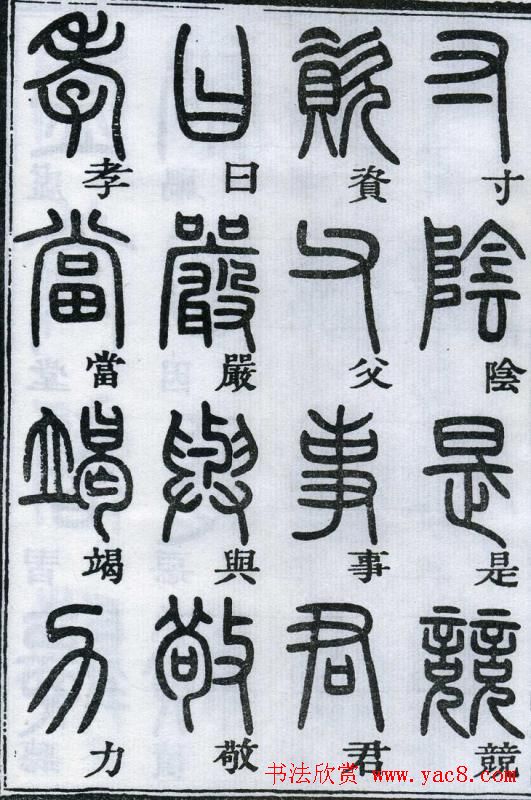 寸陰是競
資父事君
曰嚴與敬
孝當竭力
书法欣赏 www.yac8.com